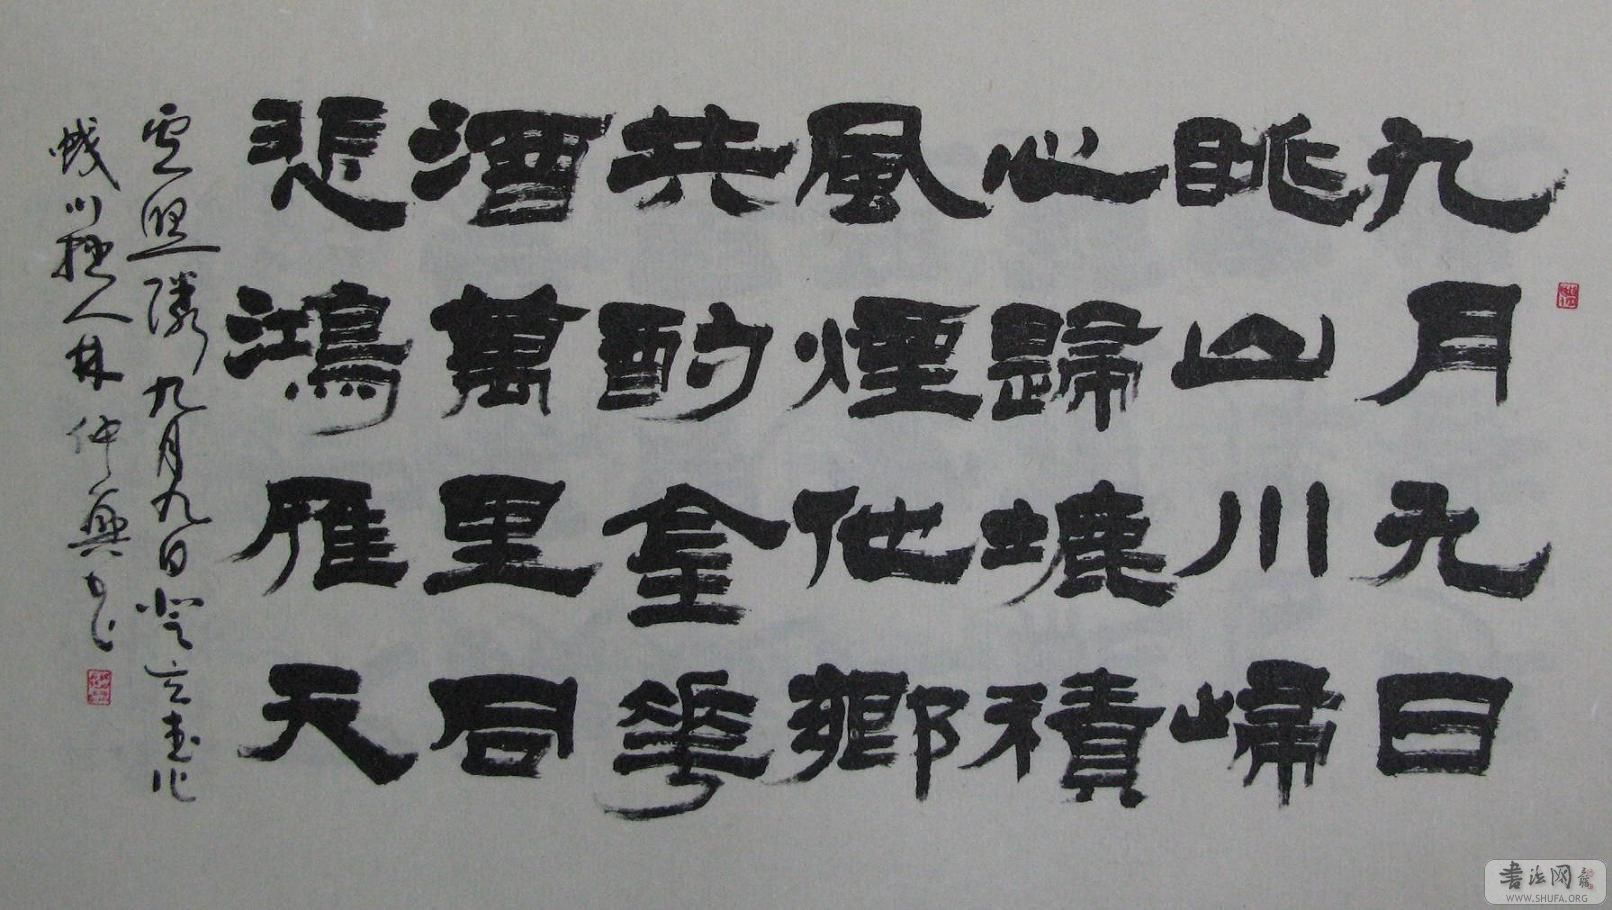 九月九日
眺山川歸
心歸塵積
風煙他鄉
共酌金華
酒萬里同
悲鴻雁天
盧照隣九月九日登玄武作
川人林仲興书
書法网
WWW.SHUFA.ORG